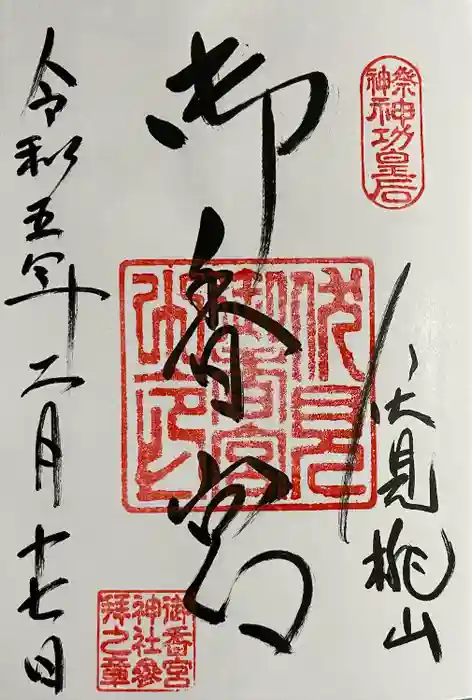 祭神
神功皇后
伏見桃山
御香宮
伏見
御香宮
令和五年二月十七日
御香宮
神社参
拝之章